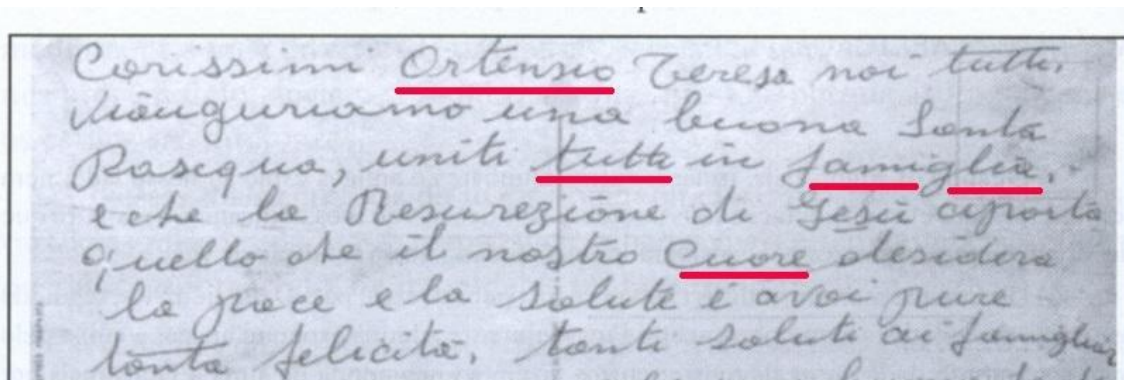 Carissimi Ortensio Teresa noi tutti,
viàuguriamo una buona Santa
Pasequa, uniti tutti in famiglia.
e che la Resurezione di Gesù ciporta
quello che il nostro Cuore desidera
la pace e la salute e avoi pure
tanta felicità, tanti saluti ai famigliar